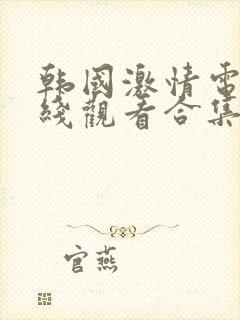 韩國激情電
綫觀看合集
官燕